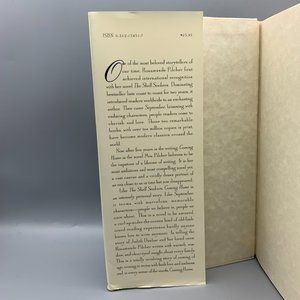 ISBN 0-312-13451-7 $25.95
One of the most beloved storytellers of
our time, Rosamunde Pilcher first
achieved international recognition
with her novel The Shell Seekers. Dominating
bestseller lists coast to coast for two years, it
introduced readers worldwide to an enchanting
author. Then came September, brimming with
enduring characters, people readers come to
cherish and love. These two remarkable
books, with over ten million copies in print,
have become modern classics around the
world.
Now after five years in the writing, Coming
Home is the novel Mrs. Pilcher believes to be
the
of a lifetime of writing. It is her
most ambitious and most compelling novel yet,
a vast canvas and a vividly drawn portrait of
an era close to us in time but now disappeared.
Like The Shell Seekers, Coming Home is
an intensely personal story. Like September
it teems with marvelous, memorable
characters—people we believe in, people we
care about. This is a novel to be savored
curl up under the covers kind of old-fashioned
good reading experience hardly anyone
knows how to do anymore. In telling the
story of Judith Dunbar and her loved ones
Rosamunde Pilcher writes with warmth, wis-
dom, and
caught about every family.
This is a totally involving story of coming of
age, coming to terms with both love and sadness
and in every sense of the words, Coming Home.